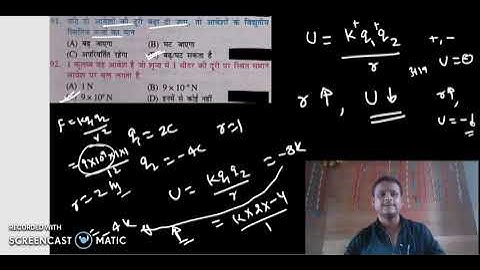 91. यदि दो आवेशों की दूरी बढ़ा दी जाय, तो आवेशों के विद्युतीय
स्थितिज ऊर्जा का मान
(A) बढ़ जाएगा (B) घट जाएगा
(C) अपरिवर्तित रहेगा बढ़/घट सकता है
92. 1 कूलम्ब वह आवेश है जो शून्य में 1 मीटर की दूरी पर स्थित समान
आवेश पर बल लगाता है
(A) 1 N (B) 9 × 10⁻⁹ N
9 × 10⁹ N (D) इनमें से कोई नहीं
U = K q₁⁺ q₂⁺ / r
+, -
U = ⊖
r ↑, U ↓
r ↑,
U = - ↓
F = K q₁ q₂ / r²
= 9 × 10⁹ × 1 × 1 / 1²
q₁ = 2C r = 1
q₂ = -4C
r = 2
U = K q₁ q₂ / r = -8K
= K × 2 × -4 / 1
= -4K
RECORDED WITH
SCREENCAST MATIC